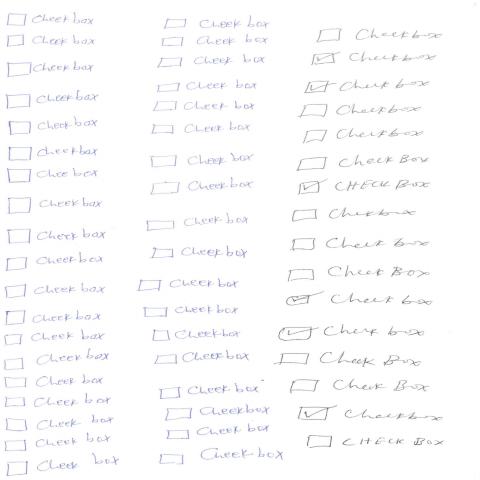 Cheekbox
Cheekbox
Cheekbox
Cheekbox
Cheekbox
Cheekbox
Chee box
Cheekbox
Cheekbox
Cheekbox
Cheekbox
Cheekbox
Cheek box
Cheekbox
Cheek box
Cheek box
Cheek box
Cheek box
Cheek box
Cheek box
Cheek box
Cheek box
Cheek box
Cheek box
Cheek box
Cheekbox
Cheekbox
Cheekbox
Cheekbox
Cheekbox
Cheekbox
Cheekbox
Cheekbox
Cheekbox
Cheekbox
Cheekbox
Cheekbox
Checkbox
Checkbox
Checkbox
Checkbox
Checkbox
Check Box
CHECK Box
Checkbox
Check box
Check Box
Checkbox
Check box
Check Box
Check Box
Checkbox
CHECK Box